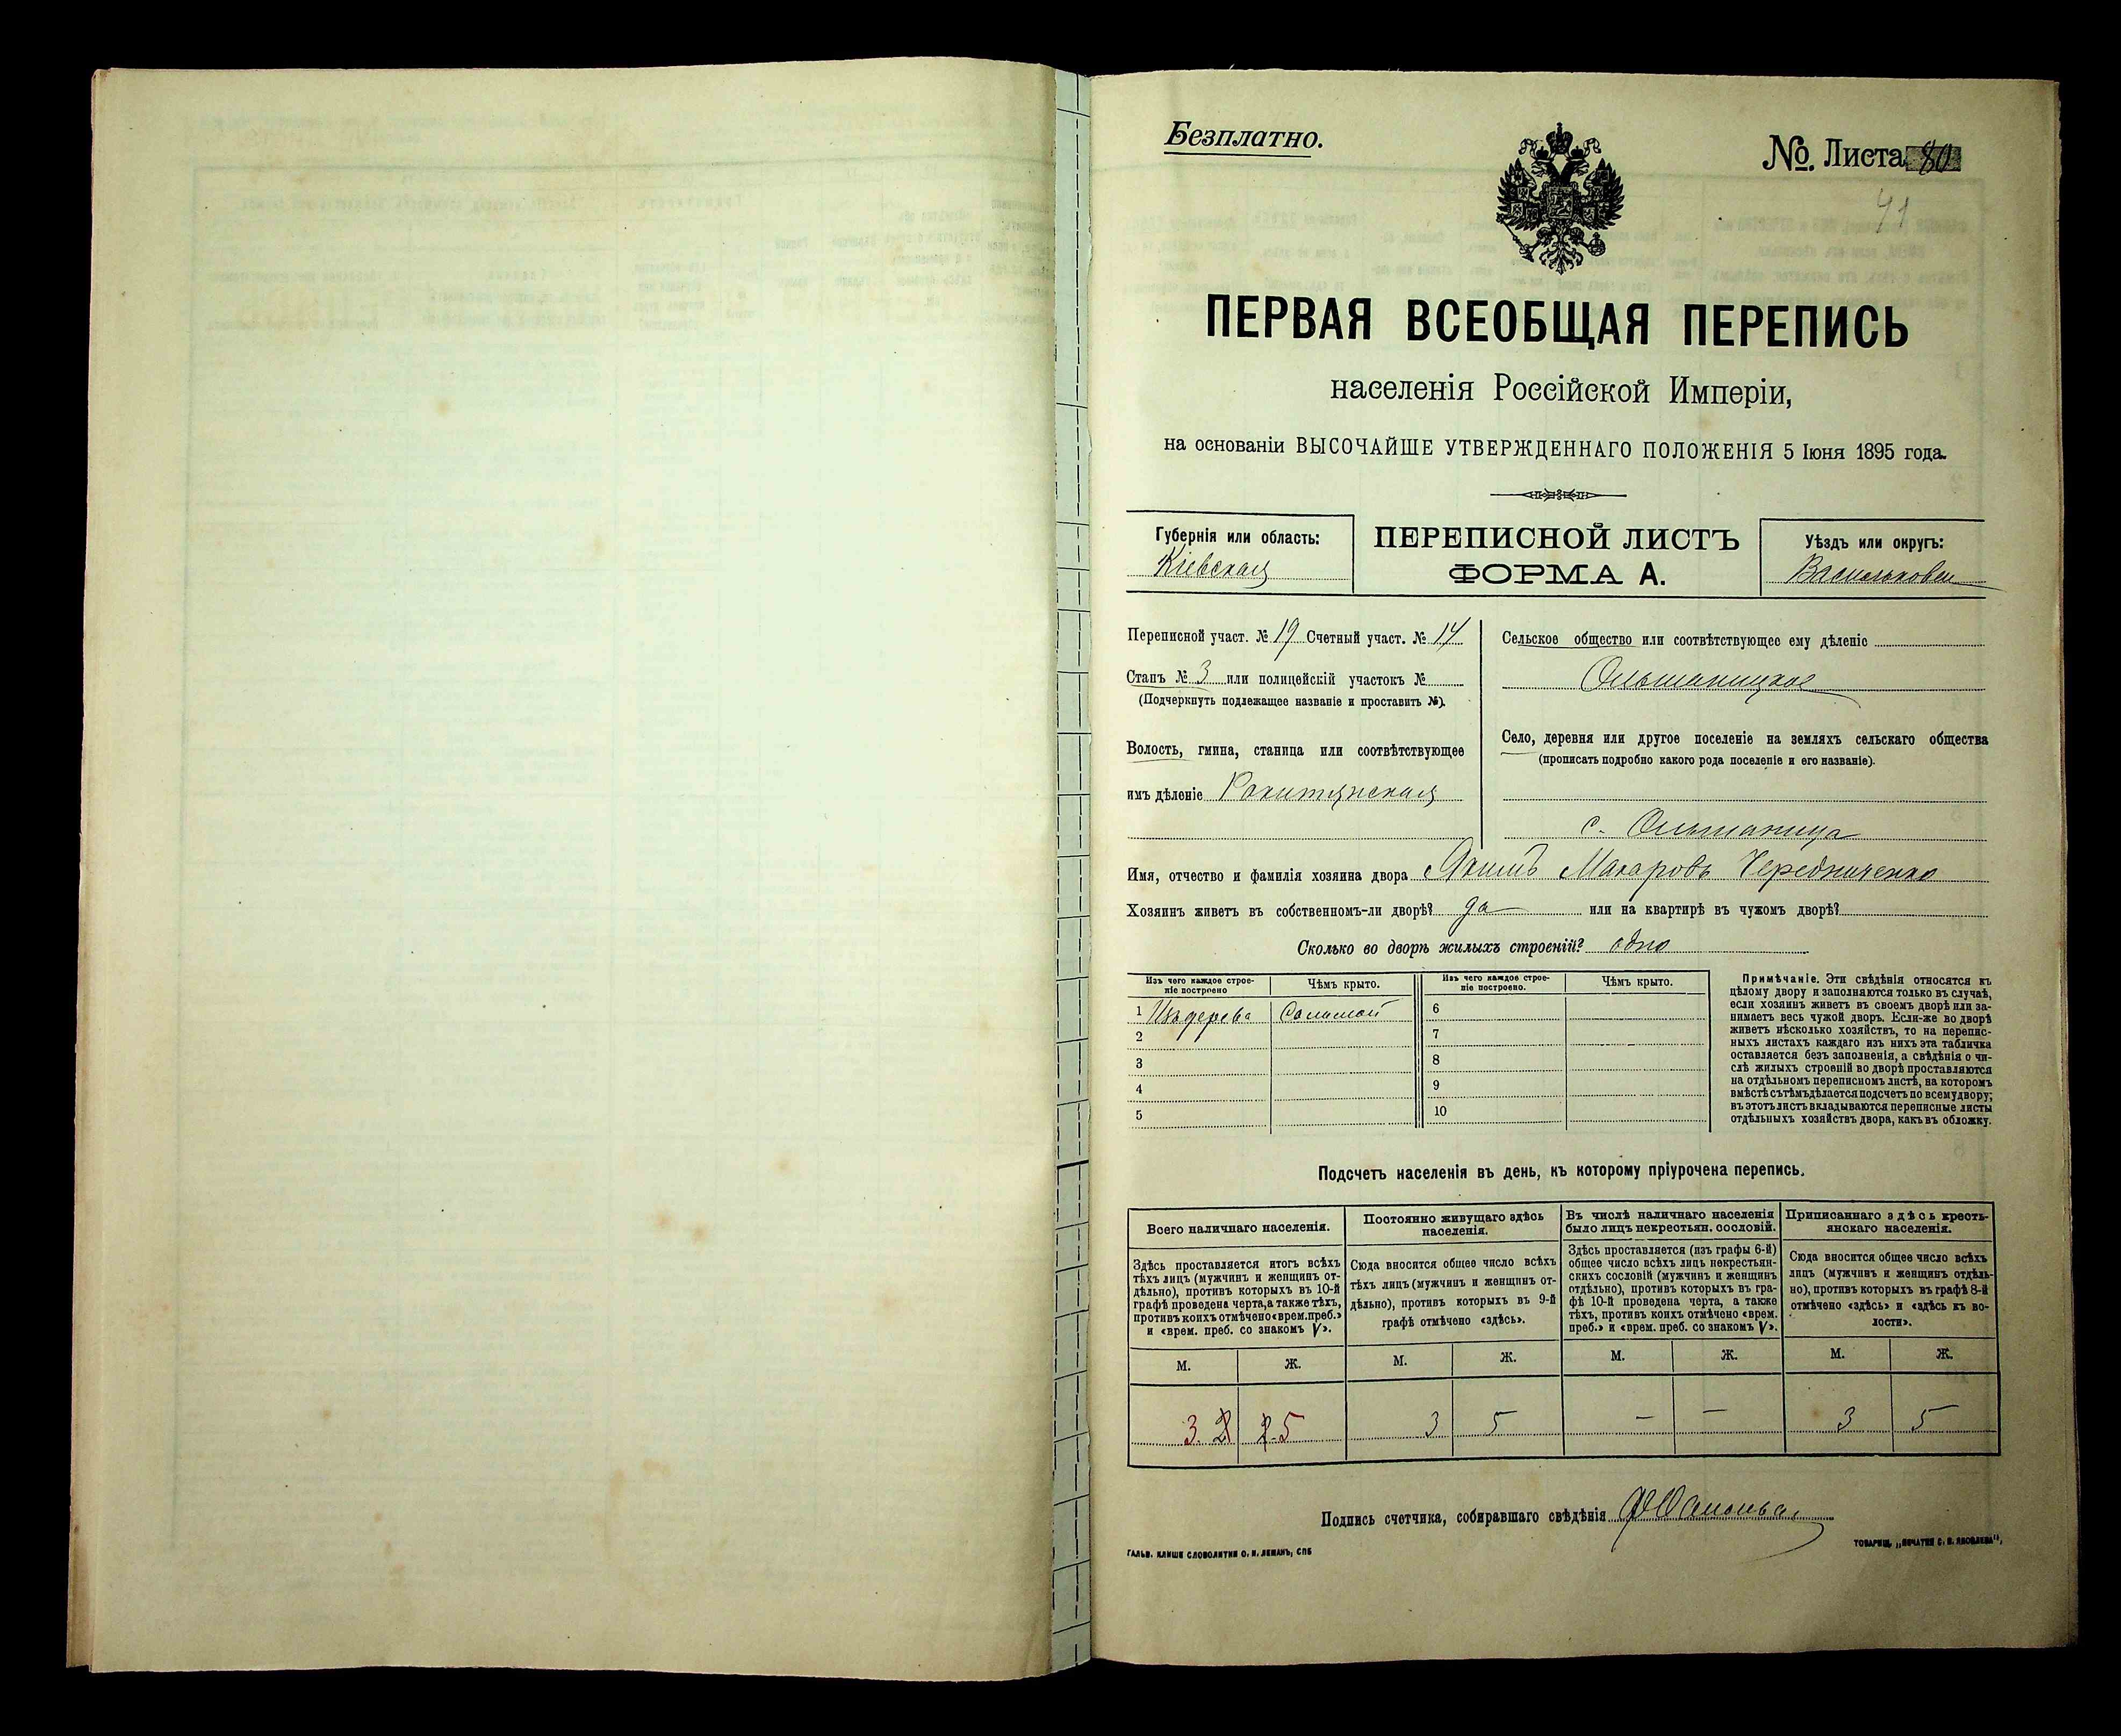 Безплатно.
№ Листа 80
41
ПЕРВАЯ ВСЕОБЩАЯ ПЕРЕПИСЬ
населенія Россійской Имперіи,
на основаніи ВЫСОЧАЙШЕ УТВЕРЖДЕННАГО ПОЛОЖЕНІЯ 5 Іюня 1895 года.
Губернія или область:
Кіевская
ПЕРЕПИСНОЙ ЛИСТЪ
ФОРМА А.
Уѣздъ или округъ:
Васильковск
Переписной участ. № 19 Счетный участ. № 14
Станъ № 3 или полицейскій участокъ №
(Подчеркнуть подлежащее названіе и проставить №).
Волость, гмина, станица или соотвѣтствующее
имъ дѣленіе Рокитянская
Сельское общество или соотвѣтствующее ему дѣленіе
Ольшаницкое
Село, деревня или другое поселеніе на земляхъ сельскаго общества
(прописать подробно какого рода поселеніе и его названіе).
с. Ольшаница
Имя, отчество и фамилія хозяина двора Якимъ Макаровъ Чередниченко
Хозяинъ живетъ въ собственномъ-ли дворѣ? да или на квартирѣ въ чужомъ дворѣ?
Сколько во дворѣ жилыхъ строеній? одно
Изъ чего каждое строе-
ніе построено
Чѣмъ крыто.
Изъ чего каждое строе-
ніе построено.
Чѣмъ крыто.
1 Изъ дерева Соломой
2
3
4
5
6
7
8
9
10
Примѣчаніе. Эти свѣдѣнія относятся къ
цѣлому двору и заполняются только въ случаѣ,
если хозяинъ живетъ въ своемъ дворѣ или за-
нимаетъ весь чужой дворъ. Если-же во дворѣ
живетъ нѣсколько хозяйствъ, то на перепис-
ныхъ листахъ каждаго изъ нихъ эта табличка
оставляется безъ заполненія, а свѣдѣнія о чи-
слѣ жилыхъ строеній во дворѣ проставляются
на отдѣльномъ переписномъ листѣ, на которомъ
вмѣстѣ съ тѣмъ дѣлается подсчетъ по всему двору;
въ этотъ листъ вкладываются переписные листы
отдѣльныхъ хозяйствъ двора, какъ въ обложку.
Подсчетъ населенія въ день, къ которому пріурочена перепись.
Всего наличнаго населенія.
Здѣсь проставляется итогъ всѣхъ
тѣхъ лицъ (мужчинъ и женщинъ от-
дѣльно), противъ которыхъ въ 10-й
графѣ проведена черта, а также тѣхъ,
противъ коихъ отмѣчено «врем. преб.»
и «врем. преб. со знакомъ V».
Постоянно живущаго здѣсь
населенія.
Сюда вносится общее число всѣхъ
тѣхъ лицъ (мужчинъ и женщинъ от-
дѣльно), противъ которыхъ въ 9-й
графѣ отмѣчено «здѣсь».
Въ числѣ наличнаго населенія
было лицъ некрестьян. сословій.
Здѣсь проставляется (изъ графы 6-й)
общее число всѣхъ лицъ некрестьян-
скихъ сословій (мужчинъ и женщинъ
отдѣльно), противъ которыхъ въ гра-
фѣ 10-й проведена черта, а также
тѣхъ, противъ коихъ отмѣчено «врем.
преб.» и «врем. преб. со знакомъ V».
Приписаннаго здѣсь кресть-
янскаго населенія.
Сюда вносится общее число всѣхъ
лицъ (мужчинъ и женщинъ отдѣль-
но), противъ которыхъ въ графѣ 8-й
отмѣчено «здѣсь» и «здѣсь къ во-
лости».
М. Ж. М. Ж. М. Ж. М. Ж.
3. 2 2. 5 3 5 – – 3 5
Подпись счетчика, собиравшаго свѣдѣнія
ГАЛЬВ. КЛИШЕ СЛОВОЛИТНИ О. И. ЛЕМАНЪ, СПБ
ТОВАРИЩ. „ПЕЧАТНЯ С. П. ЯКОВЛЕВА“,